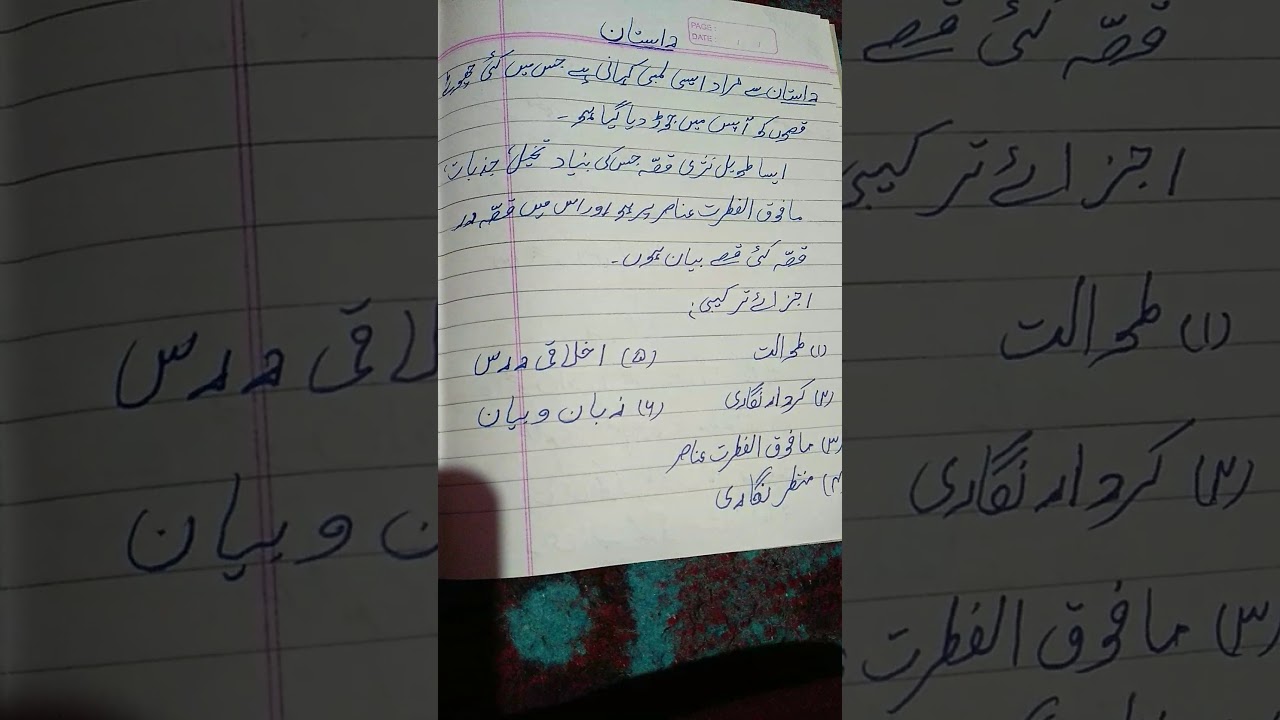 PAGE:
DATE:
داستان
داستان سے مراد ایسی لمبی کہانی ہے جس میں کئی چھوٹے
قصوں کو آپس میں جوڑ دیا گیا ہو۔
ایسا طویل نثری قصّہ جس کی بنیاد تخیل، جذبات،
مافوق الفطرت عناصر پر ہو اور اس میں قصّہ در
قصّہ کئی قصے بیان ہوں۔
اجزائے ترکیبی:
(۱) طوالت
(۲) کردار نگاری
(۳) مافوق الفطرت عناصر
(۴) منظر نگاری
(۵) اخلاقی درس
(۶) زبان و بیان